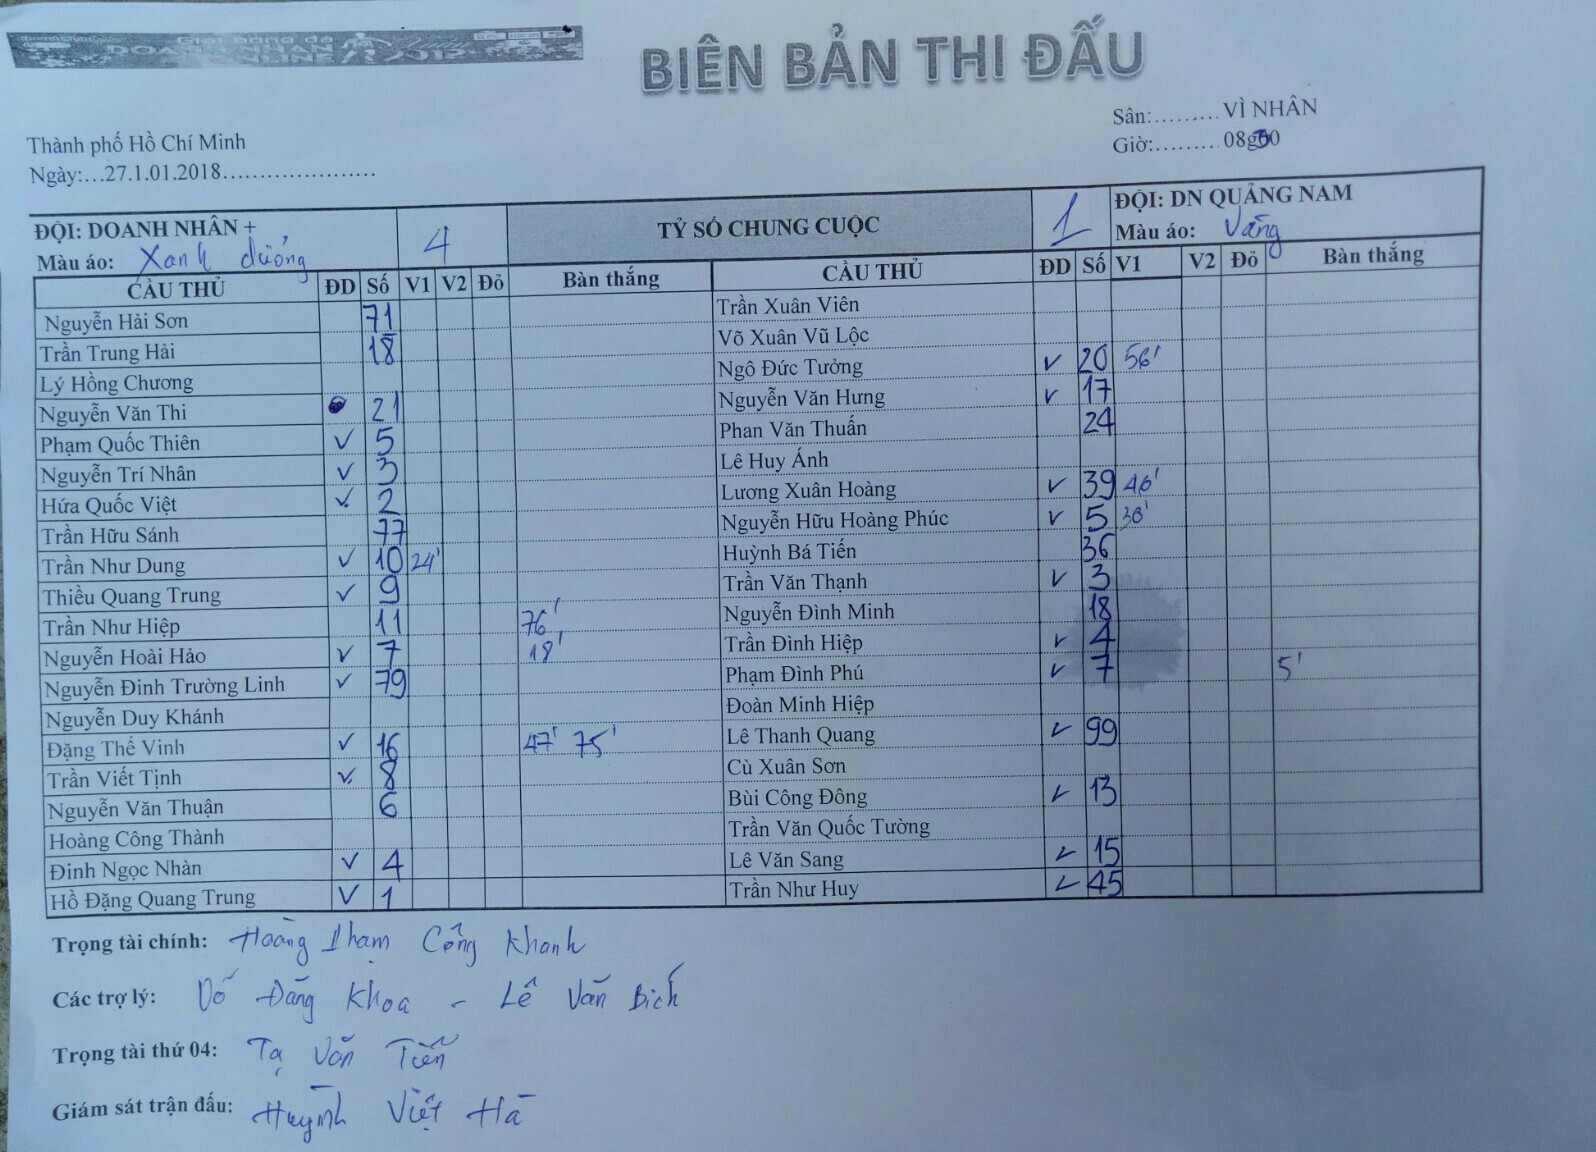 DOANH NHÂN
ONLINE 2017
BIÊN BẢN THI ĐẤU
Thành phố Hồ Chí Minh
Ngày:...27.1.01.2018.....................
Sân:......... VÌ NHÂN
Giờ:......... 08g30
ĐỘI: DOANH NHÂN + 4 TỶ SỐ CHUNG CUỘC 1 ĐỘI: DN QUẢNG NAM
Màu áo: Xanh dương Màu áo: Vàng
CẦU THỦ ĐD Số V1 V2 Đỏ Bàn thắng CẦU THỦ ĐD Số V1 V2 Đỏ Bàn thắng
Nguyễn Hải Sơn 71 Trần Xuân Viên
Trần Trung Hải 18 Võ Xuân Vũ Lộc
Lý Hồng Chương Ngô Đức Tưởng ✓ 20 56'
Nguyễn Văn Thi 21 Nguyễn Văn Hưng ✓ 17
Phạm Quốc Thiên ✓ 5 Phan Văn Thuấn 24
Nguyễn Trí Nhân ✓ 3 Lê Huy Ánh
Hứa Quốc Việt ✓ 2 Lương Xuân Hoàng ✓ 39 46'
Trần Hữu Sánh 77 Nguyễn Hữu Hoàng Phúc ✓ 5 38'
Trần Như Dung ✓ 10 24' Huỳnh Bá Tiến 36
Thiều Quang Trung ✓ 9 Trần Văn Thạnh ✓ 3
Trần Như Hiệp 11 76' Nguyễn Đình Minh 18
Nguyễn Hoài Hảo ✓ 7 18' Trần Đình Hiệp ✓ 4
Nguyễn Đinh Trường Linh ✓ 79 Phạm Đình Phú ✓ 7 5'
Nguyễn Duy Khánh Đoàn Minh Hiệp
Đặng Thế Vinh ✓ 16 47' 75' Lê Thanh Quang ✓ 99
Trần Viết Tịnh ✓ 8 Cù Xuân Sơn
Nguyễn Văn Thuận 6 Bùi Công Đông ✓ 13
Hoàng Công Thành Trần Văn Quốc Tường
Đinh Ngọc Nhàn ✓ 4 Lê Văn Sang ✓ 15
Hồ Đặng Quang Trung ✓ 1 Trần Như Huy ✓ 45
Trọng tài chính: Hoàng Phạm Công Khanh
Các trợ lý: Đỗ Đăng Khoa - Lê Văn Bích
Trọng tài thứ 04: Tạ Văn Tiến
Giám sát trận đấu: Huỳnh Việt Hà